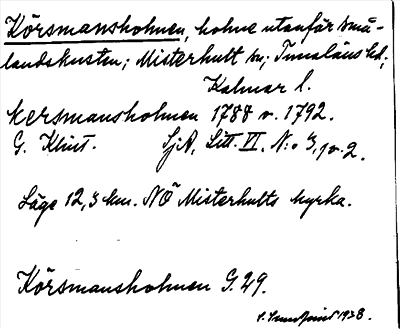 Körsmansholmen, holme utanför små-
landskusten; Misterhult sn; Tunaläns hd;
Kalmar l.
Kersmansholmen 1788 o. 1792.
G. Klint. SjA, Litt. VI. N:o 3, 1 o. 2.
Läge 12,3 km. NÖ Misterhults kyrka.
Körsmansholmen G. 29.
1938.